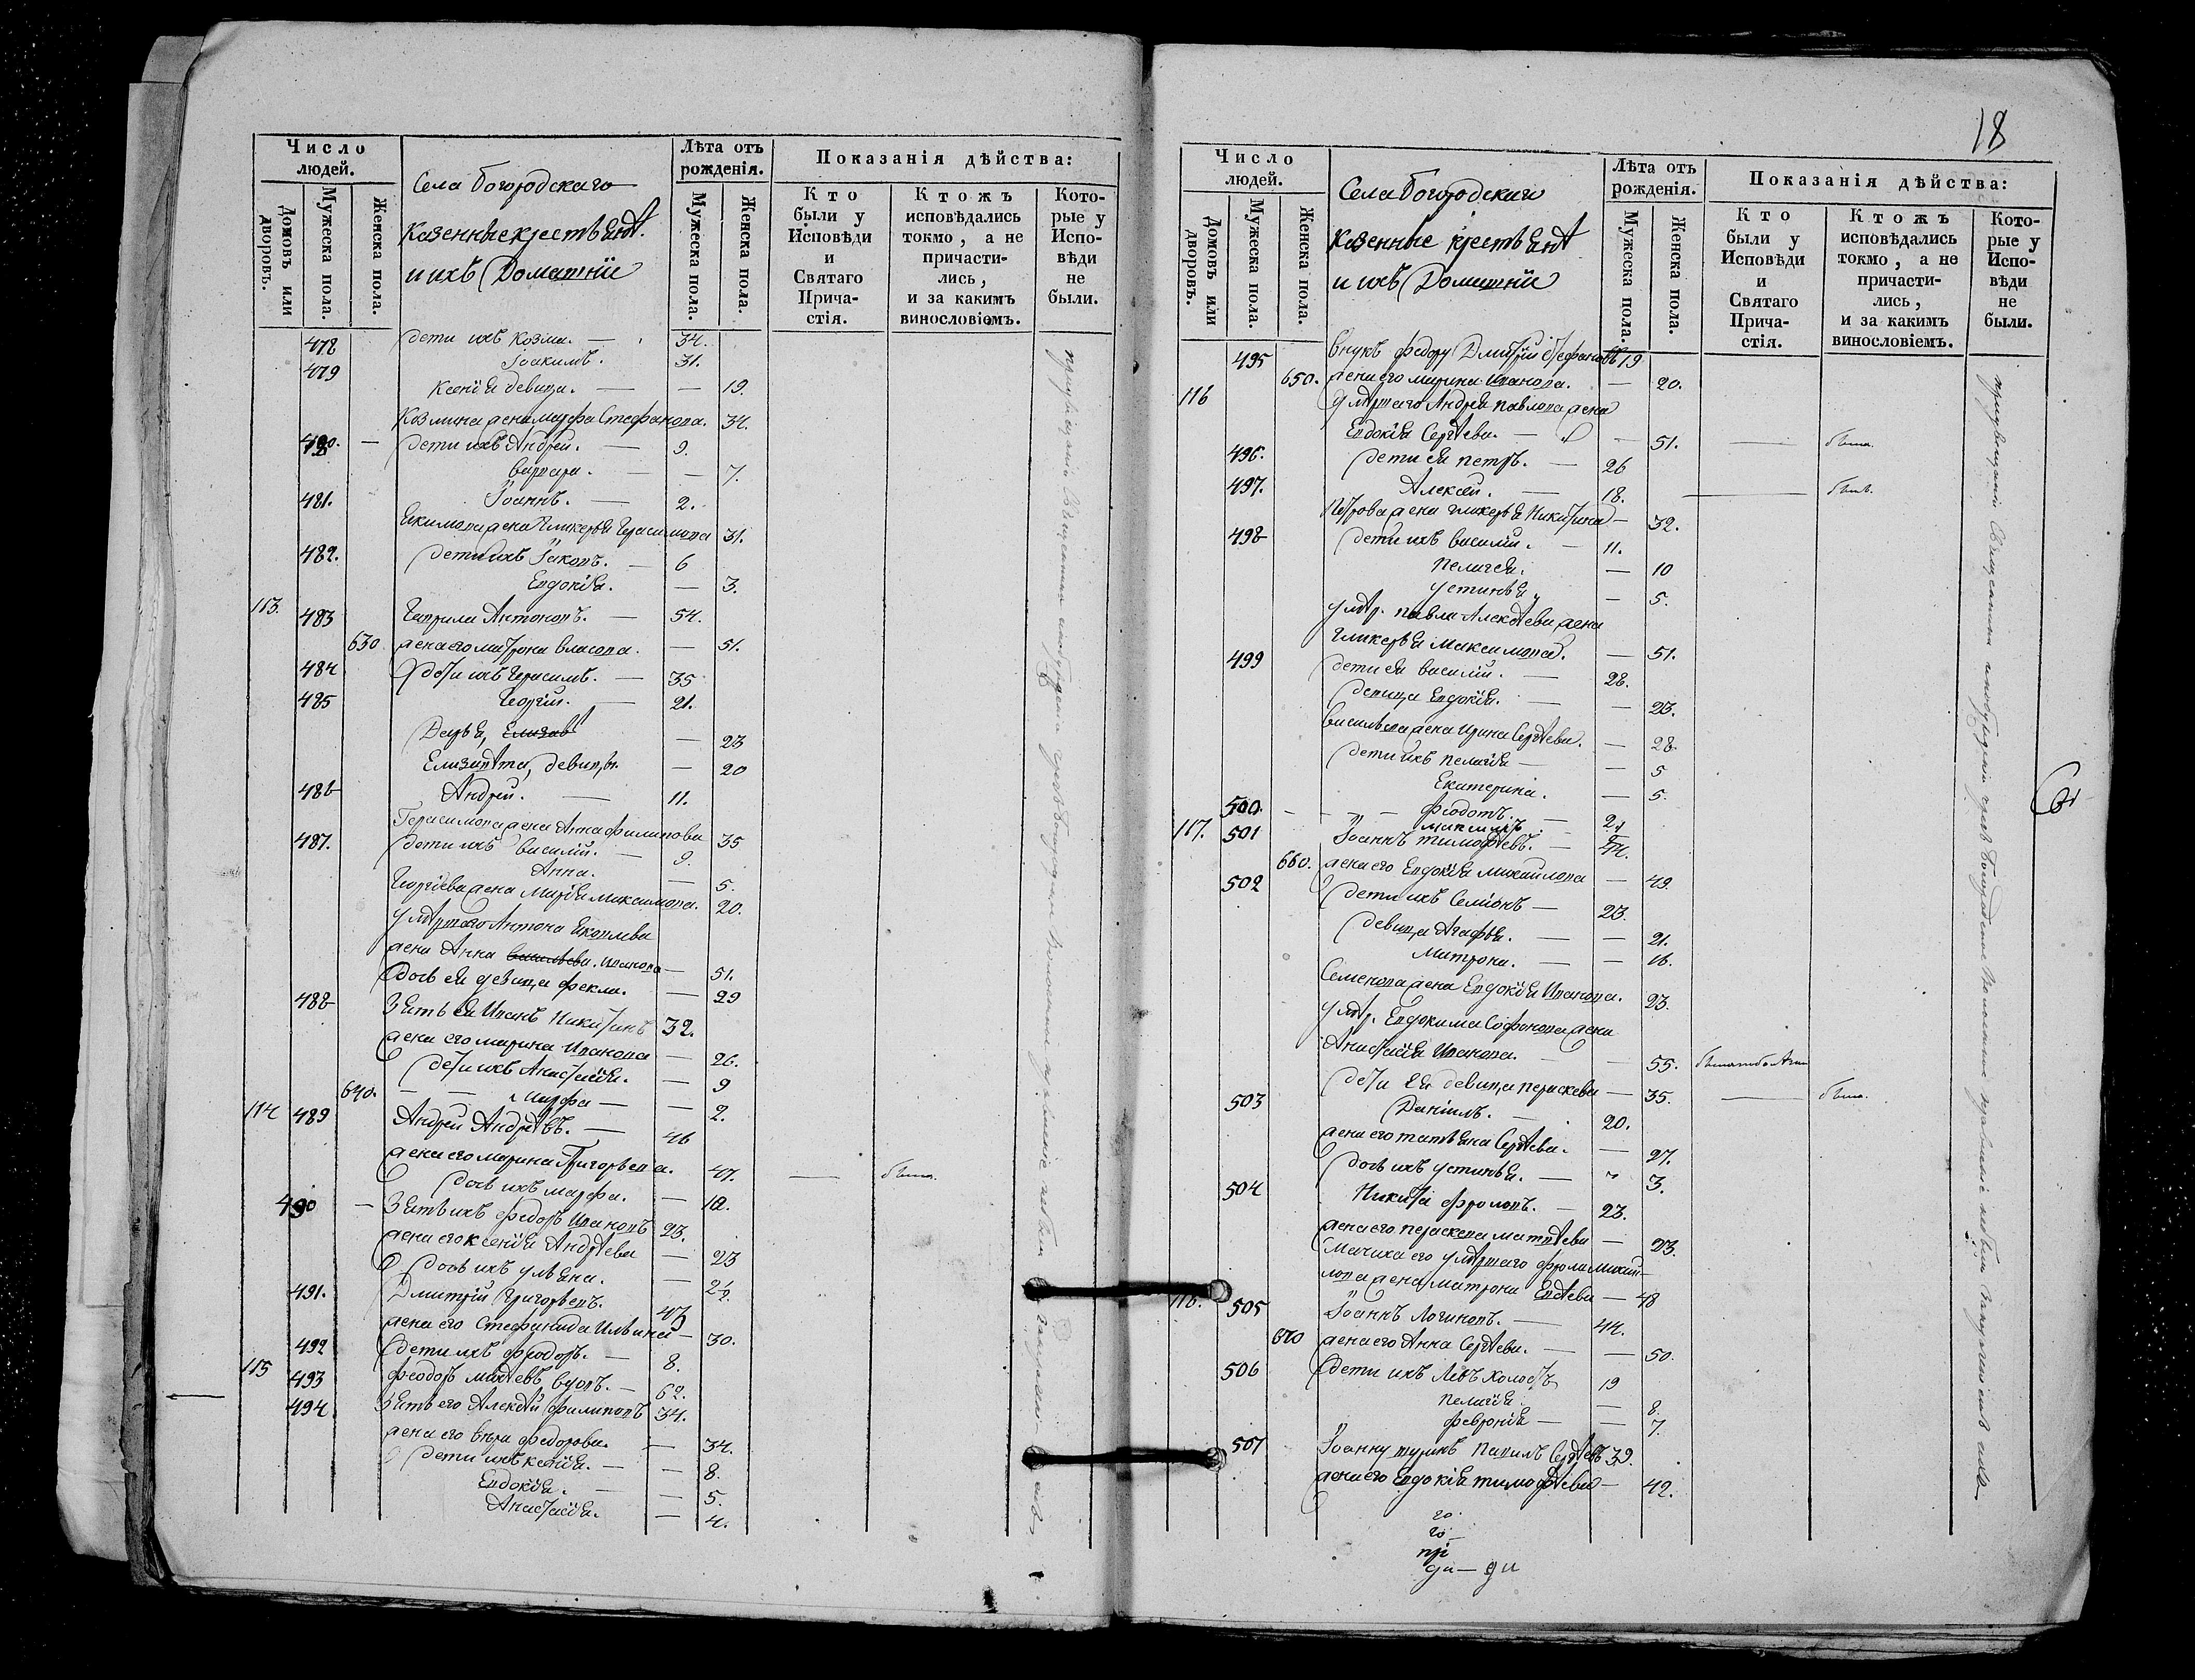 Число людей.
Домовъ или дворовъ.
Мужеска пола.
Женска пола.
Села Богородскаго
Казенные крестьянѣ
и ихъ Домашніи
Лѣта отъ рожденія.
Мужеска пола.
Женска пола.
Показанія дѣйства:
Кто были у Исповѣди и Святаго Прича-стія.
Ктожъ исповѣдались токмо, а не причасти-лись, и за какимъ винословіемъ.
Кото-рые у Испо-вѣди не были.
478 дети ихъ Козма. — 34.
479 Іоакимъ. 31.
Ксенія девица. — — 19.
Козмина жена марфа Стефанова. 34.
480. — дети ихъ Андрей. — 9.
варвара. — — 7.
481. Іоаннъ. — 2.
Екимова жена Гликерья Герасимова 31.
482. дети ихъ Іаковъ. — 6
Евдокія. — 3.
113. 483 Гаврила Антоновъ. — 54.
630 жена его матрона власова. — 51.
484 дети ихъ Герасимъ. — 35
485 Георгій. — 21.
Дарья, — 23
Елизавѣта, девицы. — 20
486 Андрей. — 11.
Герасимова жена Анна филипова 35
487. дети ихъ василій. — 9.
Анна. — 5.
Георгіева жена Марія максимова. 20.
умѣршаго Антона Яковлева
жена Анна Васильева. иванова — 51.
дочь ея девица фекла. — 29
488 Зять ея Иванъ Никитинъ 32.
жена его марина Иванова — 26.
дети ихъ Анастасія. — 9
640. — — марфа — — 2.
114 489 Андрей Андрѣевъ. — 46
жена его марина Григорьева. 47. — была.
дочь ихъ марфа. — 12.
490 — Зять ихъ федоръ Ивановъ 23.
жена его ксенія Андрѣева — 23
дочь ихъ ульяна. — 2½
491. Дмитрій Григорьевъ. 43
жена его Стефанида Ильина — 30.
492 дети ихъ феодоръ. — 8.
115 493 феодоръ матвеевъ вдовъ. — 62.
494 Зять его Алексѣй филиповъ 34.
жена его вѣра федорова. — 34.
дети ихъ ксенія. — — 8.
Евдокія. — — 5.
Анастасія. — 4.
18
Число людей.
Домовъ или дворовъ.
Мужеска пола.
Женска пола.
Села Богородскаго
Казенные крестьянѣ
и ихъ Домашніи
Лѣта отъ рожденія.
Мужеска пола.
Женска пола.
Показанія дѣйства:
Кто были у Исповѣди и Святаго Прича-стія.
Ктожъ исповѣдались токмо, а не причасти-лись, и за какимъ винословіемъ.
Кото-рые у Испо-вѣди не были.
495 внукъ федору Дмитрій Стефановъ 19
650. жена его марина Иванова. — 20.
116 умѣршаго Андрея павлова жена
Евдокія Сергѣева. — — 51. — была.
496. дети ея петръ. — 26
497. Алексѣй. — 18. — былъ.
Петрова жена гликерья Никитина — 32.
498 дети ихъ василій. — 11.
пелагея. — 10
устинья — 5.
умѣр. павла Алексѣева жена
гликерья Максимова. — 51.
499 дети ея василій. — 28.
девица Евдокія. — 23.
васильева жена Ирина Сергѣева. — 28
дети ихъ пелагія — — 5
Екатерина. — 5.
500. — — — феодотъ. — 2
максимъ.
117. 501 Іоаннъ тимофѣевъ. —
660. жена его Евдокія михайлова — 49.
502 дети ихъ Семіонъ — 23.
девица Агафья. — — 21.
матрона. — — 16.
Семенова жена Евдокія Иванова. 23.
умѣр. Евдокима Софонова жена
Анастасія Иванова. — 55.
дети ея девица параскева — 35. — была.
503 Даніилъ. — 20.
жена его татьяна Сергѣева. — 27.
дочь ихъ устинья. — 3.
504 Никита фроловъ. — 23.
жена его параскева матвѣева — 23.
мачиха его умѣршаго фрола михай-
лова жена матрона Евсѣева — 48
118. 505 Іоаннъ Логиновъ. — 44.
670 жена его Анна Сергѣева. — — 50.
506 дети ихъ Левъ холостъ 19
пелагія. — 8.
февронія — — 7.
507 Іоанну шуринъ павилъ Сергѣевъ 39.
жена его Евдокія тимофѣева — 42.